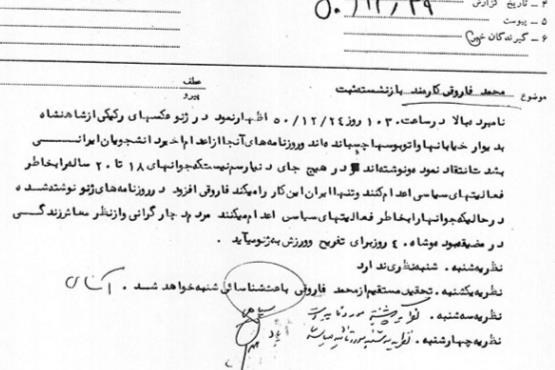 ۴ ـ تاریخ گزارش ۵۰/۱۲/۲۹
۵ ـ پیوست
۶ ـ گیرندگان خبر
موضوع محمد فاروقی کارمند بازنشسته ثبت
عطف
پیرو
نامبرده بالا در ساعت ۱۰۳۰ روز ۵۰/۱۲/۲۴ اظهار نمود در ژنو عکسهای رکیکی از شاهنشاه
بدیوار خیابانها و اتوبوسها چسبانده اند و روزنامه های آنجا از اعدام اخیر دانشجویان ایرانی
بشدت انتقاد نموده و نوشته اند در هیچ جای دنیا رسم نیست که جوانهای ۱۸ تا ۲۰ ساله را بخاطر
فعالیتهای سیاسی اعدام کنند و تنها ایران این کار را میکند فاروقی افزود در روزنامه های ژنو نوشته شده
در حالیکه جوانها را بخاطر فعالیتهای سیاسی اعدام میکنند مردم دچار گرانی و از نظر معاش زندگی
در مضیقه بوده و شاه ۴۰ روز برای تفریح و ورزش به ژنو میآید .
نظریه شنبه . شنبه نظری ندارد
نظریه یکشنبه . تحقیق مستقیم از محمد فاروقی باعث شناسائی شنبه خواهد شد .
نظریه سه شنبه .
نظریه چهارشنبه .